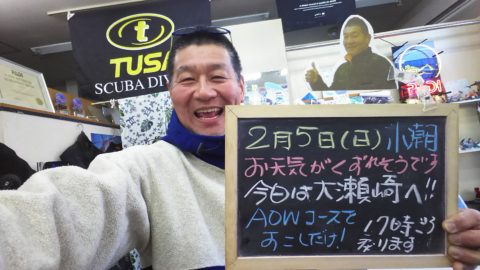 TUSA
SCUBA DIV
PADI
2月5日(日) 小潮
お天気がくずれそうです
今日は大瀬崎へ!!
AOWコースで
おこしだけ!
17時ごろ
戻ります